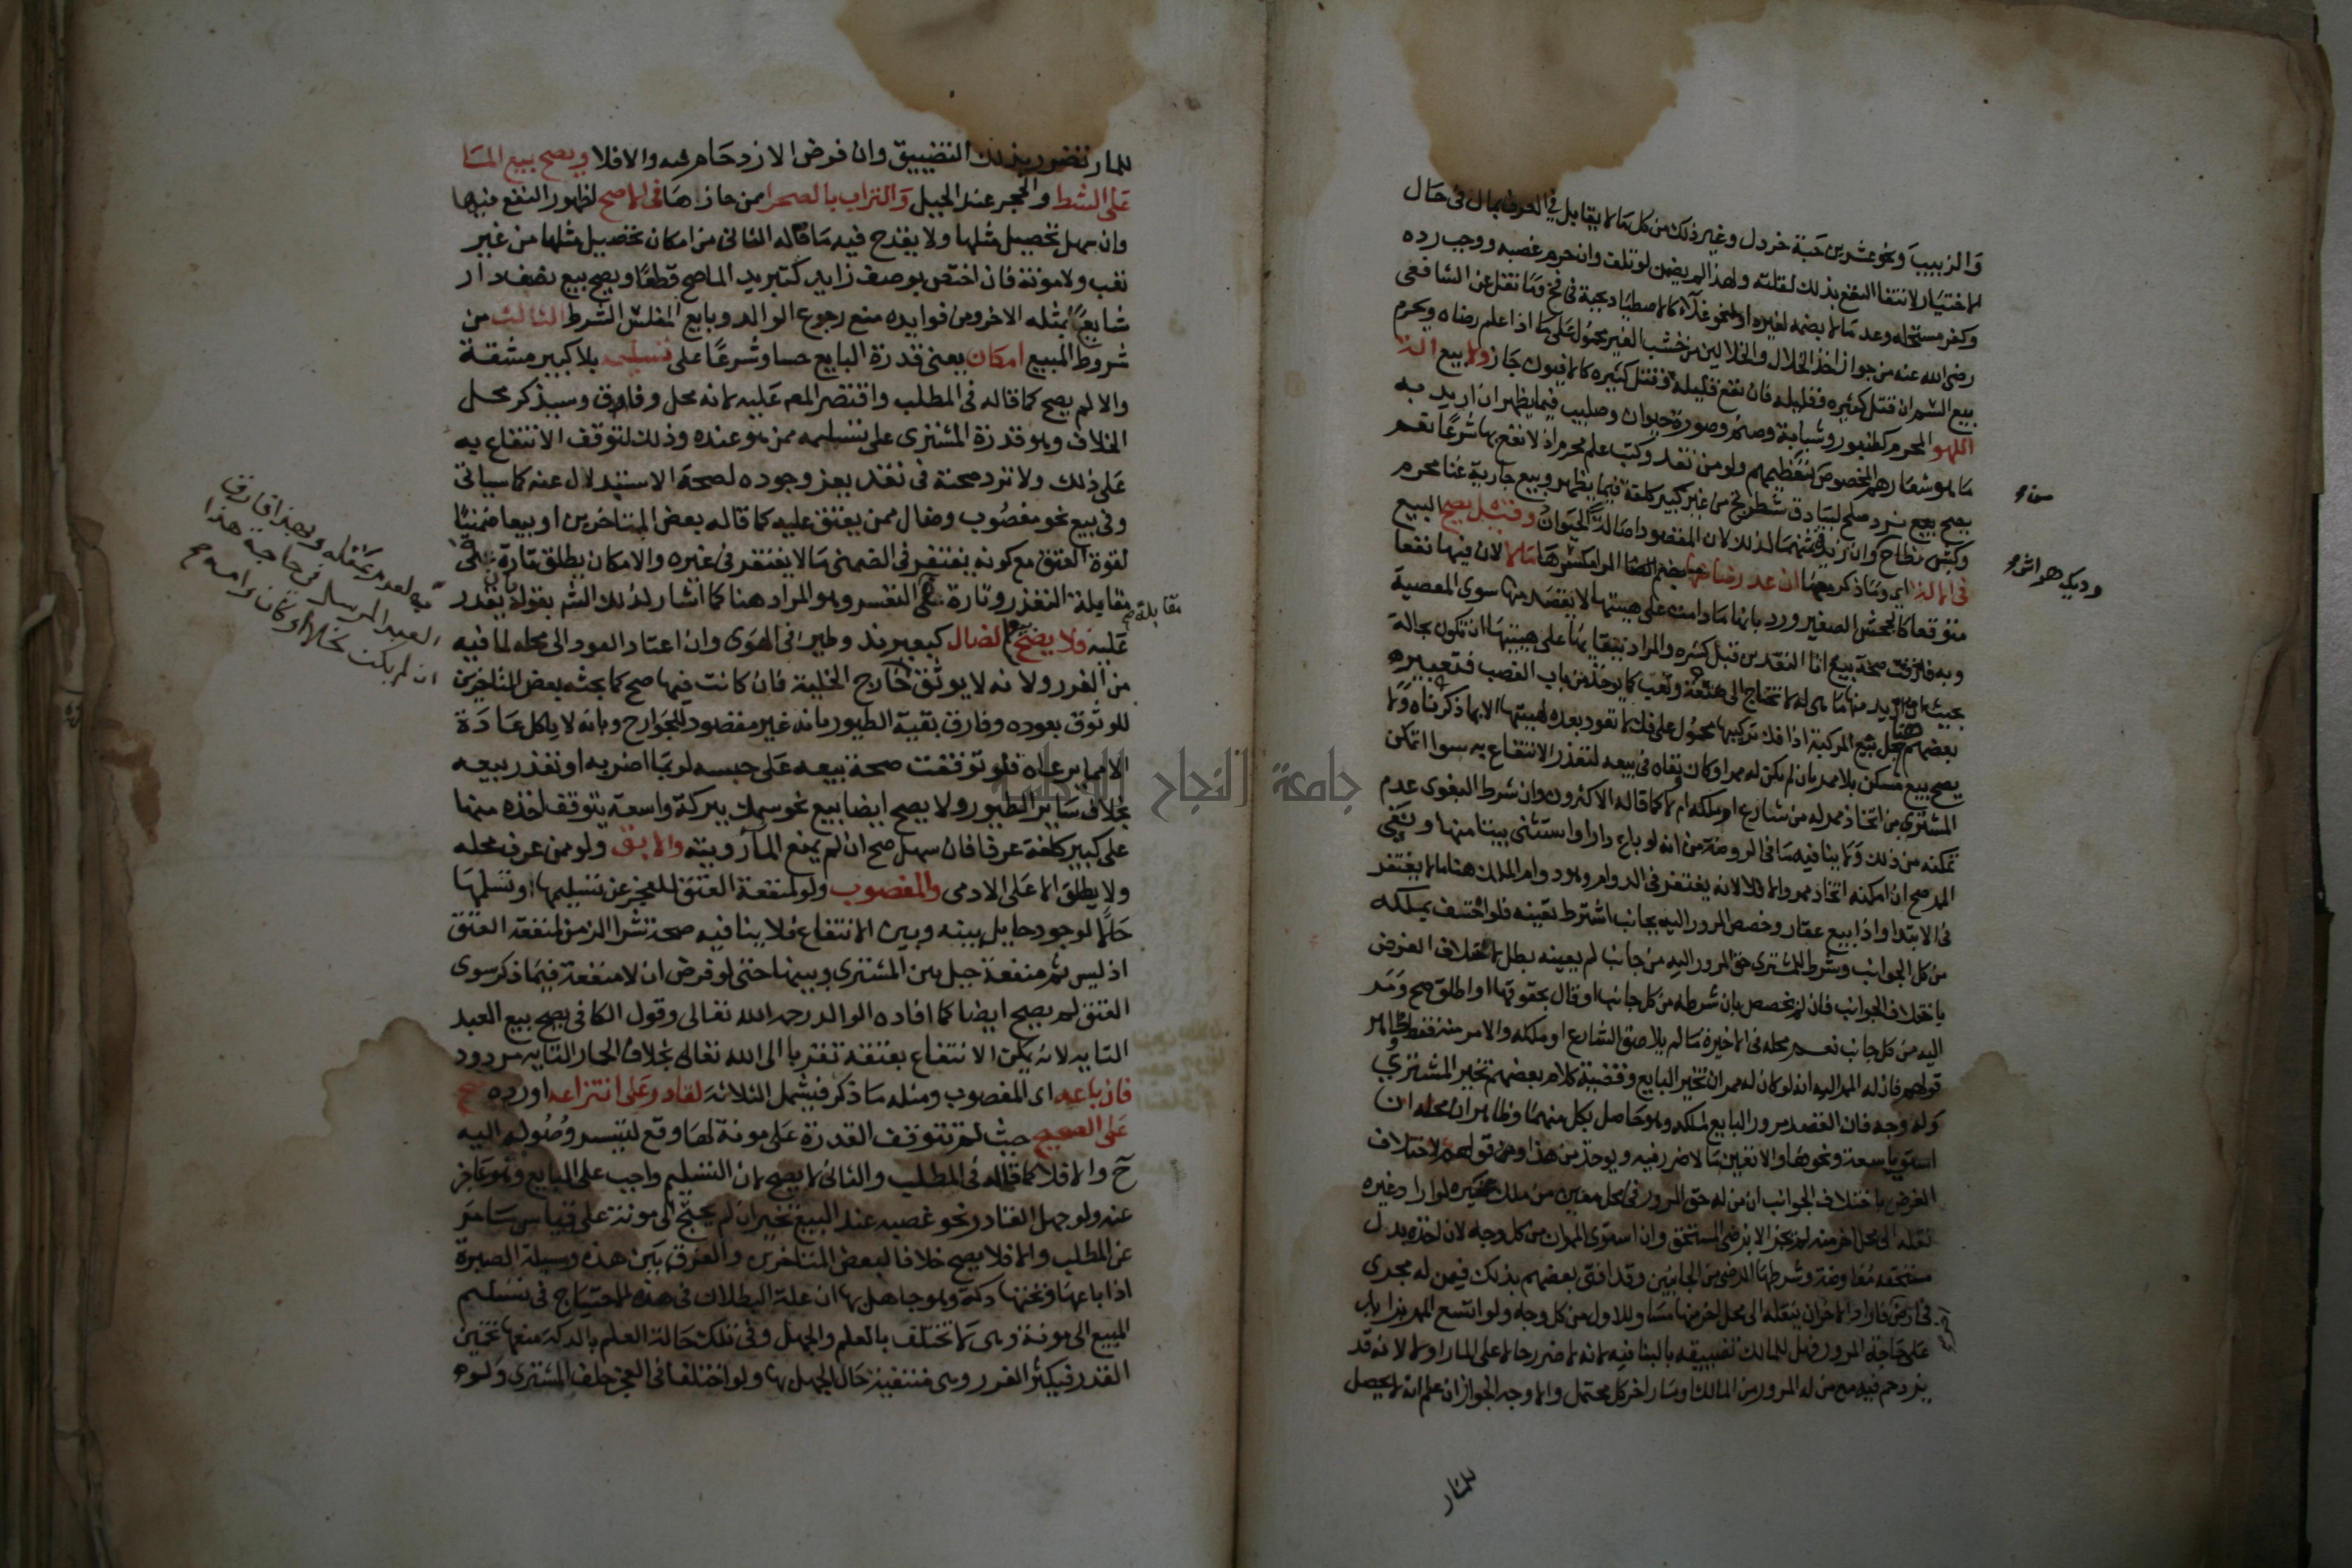 والزبيب ونحو عشرين حبة خردل وغير ذلك من كل ما لا يقابل في العرف بمال في حال
الاختيار لانتفا النفع بذلك لقلته ولهذا لم يضمن لو تلف وان حرم غصبه ووجب رده
وكفر مستحله وعد ما لا يضمه لغيره او لنحو غلاء كالاصطياد بحبة في فخ وما نقل عن الشافعي
رضي الله عنه من جواز اخذ الخلال والخلالين من خشب الغير محمول على ما اذا علم رضاه ويحرم
بيع السم ان قتل كثيره وقليله فان نفع قليله وقتل كثيره كالافيون جاز ولا بيع الة
اللهو المحرم كطنبور وشبابة وصنم وصورة حيوان وصليب فيما يظهر ان اريد به
ما هو شعارهم المخصوص بتعظيمهم ولو من نقد وكتب علم محرم اذ لا نفع بها شرعا نعم
يصح بيع نرد صلح لبيادق شطرنج من غير كبير كلفة فيما يظهر وبيع جارية غنا محرم
وكبش نطاح وان زيد في ثمنهما لذلك لان المقصود اصالة الحيوان وقيل يصح البيع
في الالة اي وما ذكر معها ان عد رضاضها بضم الضا اي مكسرها مالا لان فيها نفعا
متوقعا كالجحش الصغير ورد بانها ما دامت على هيئتها لا يقصد منها سوى المعصية
وبه فارقت صحة بيع انا النقدين قبل كسره والمراد ببقايها على هيئتها ان تكون بحالة
بحيث اذا اريد منها ما هي له لا تحتاج الى صنعة وتعب كما يوخذ من باب الغصب فتعبير
بعضهم هنا بحل بيع المركبة اذا فك تركيبها محمول على فك لا تعود بعده لهيئتها الا بما ذكرناه ولا
يصح بيع مسكن بلا ممر بان لم يكن له ممر او كان ونفاه في بيعه لتعذر الانتفاع به سوا اتمكن
المشتري من اتخاذ ممر له من شارع او ملكه ام لا كما قاله الاكثرون وان شرط البغوى عدم
تمكنه من ذلك ولا ينافيه ما في الروضة من انه لو باع دارا واستثنى بيتا منها ونفى
الممر صح ان امكنه اتخاذ ممر والا فلا لانه يغتفر في الدوام وهو دوام الملك هنا ما لا يغتفر
في الابتدا واذا بيع عقار وخصص المرور اليه بجانب اشترط تعيينه فلو احتف بملكه
من كل الجوانب وشرط للمشتري حق المرور اليه من جانب لم يعينه بطل لاختلاف الغرض
باختلاف الجوانب فان لم يخصص بان شرطه من كل جانب او قال بحقوقها او اطلق صح ومر
اليه من كل جانب نعم محله في الاخيرة ما لم يلاصق الشارع او ملكه والا مر منه فقط وظاهر
قولهم فان له الممر اليه انه لو كان له ممران تخير البايع وقضية كلام بعضهم تخير المشتري
وله وجه فان القصد مرور البايع لملكه وهو حاصل بكل منهما وظاهر ان محله ان
استويا سعة ونحوها والا تعين ما لا ضرر فيه ويوخذ من هذا ومن قولهم لاختلاف
الغرض باختلاف الجوانب ان من له حق المرور في محل معين من ملك غيره لو اراد غيره
نقله الى محل اخر منه لم يجز الا برضى المستحق وان استوى الممران من كل وجه لان اخذه بدل
مستحقه معاوضة وشرطها الرضى من الجانبين وقد افتى بعضهم بذلك فيمن له مجرى
في ارض فاراد الاخر ان ينقله الى محل اخر منها مساو للاول من كل وجه ولو اتسع الممر بزايد
على حاجة المرور فهل للمالك تضييقه بالبنا فيه لانه لا ضرر حالا على المار اولا لانه قد
يزدحم فيه مع من له المرور من المالك او مار اخر كل محتمل والاوجه الجواز ان علم انه لا يحصل
وديك هراش
للمار
للمار تضرر بذلك التضييق وان فرض الازدحام فيه والا فلا ويصح بيع الما
على الشط والحجر عند الجبل والتراب بالصحرا ممن حازها في الاصح لظهور النفع فيها
وان سهل تحصيل مثلها ولا يقدح فيه ما قاله الثاني من امكان تحصيل مثلها من غير
تعب ولا مونة فان اختص بوصف زايد كتبريد الما صح قطعا ويصح بيع نصف دار
شايعا بمثله الاخر ومن فوايده منع رجوع الوالد وبايع المفلس الشرط الثالث من
شروط المبيع امكان يعنى قدرة البايع حسا وشرعا على تسليمه بلا كبير مشقة
والا لم يصح كما قاله في المطلب واقتصر المص عليه لانه محل وفاق وسيذكر محل
الخلاف وهو قدرة المشتري على تسليمه ممن هو عنده وذلك لتوقف الانتفاع به
على ذلك ولا ترد صحته في نقد يعز وجوده لصحة الاستبدال عنه كما سياتي
وفي بيع نحو مغصوب وضال ممن يعتق عليه كما قاله بعض المتاخرين او بيعا ضمنيا
لقوة العتق مع كونه يغتفر في الضمني ما لا يغتفر في غيره والامكان يطلق تارة على
مقابلة التعذر وتارة على التعسر وهو المراد هنا كما اشار لذلك الشم بقوله بان يقدر
عليه فلا يصح الضال كبعير ند وطير في الهوى وان اعتاد العود الى محله لما فيه
من الغرر ولانه لا يوثق خارج الخلية فان كانت فيها صح كما بحثه بعض المتاخرين
للوثوق بعوده وفارق بقية الطيور بانه غير مقصود للجوارح وبانه لا ياكل عادة
الا مما يرعاه فلو توقفت صحة بيعه على حبسه لربما اضر به او تعذر بيعه
بخلاف ساير الطيور ولا يصح ايضا بيع نحو سمك ببركة واسعة يتوقف اخذه منها
على كبير كلفة عرفا فان سهل صح ان لم يمنع الما رويته والابق ولو ممن عرف محله
ولا يطلق الا على الادمى والمغصوب ولو لمنفعة العتق للعجز عن تسليمها او تسلمها
حالا لوجود حايل بينه وبين الانتفاع فلا ينافيه صحة شرا الزمن لمنفعة العتق
اذ ليس ثم منفعة حيل بين المشتري وبينها حتى لو فرض ان لا منفعة فيما ذكر سوى
العتق لم يصح ايضا كما افاده الوالد رحمه الله تعالى وقول الكافى يصح بيع العبد
التايه لانه يمكن الانتفاع بعتقه تقربا الى الله تعالى بخلاف الحمار التايه مردود
فان باعه اى المغصوب ومثله ما ذكر فيشمل الثلاثة لقادر على انتزاعه او رده صح
على الصحيح حيث لم تتوقف القدرة على مونة لها وقع لتيسر وصوله اليه
ح والا فلا كما قاله في المطلب والثانى لا يصح لان التسليم واجب على البايع وهو عاجز
عنه ولو جهل القادر نحو غصبه عند البيع تخير ان لم يحتج الى مونة على قياس ما مر
عن المطلب والا فلا يصح خلافا لبعض المتاخرين والفرق بين هذه ومسيلة الصبرة
اذا باعها وتحتها دكة وهو جاهل بها ان علة البطلان في هذه الاحتياج في تسليم
المبيع الى مونة وهى لا تختلف بالعلم والجهل وفي تلك حالة العلم بالدكة منعها تخمين
القدر فيكثر الغرر وهى منتفية حال الجهل بها ولو اختلفا فى العجز حلف المشترى ولو
العبد المرسل في حاجة هذا
جامعة النجاح الوطنية